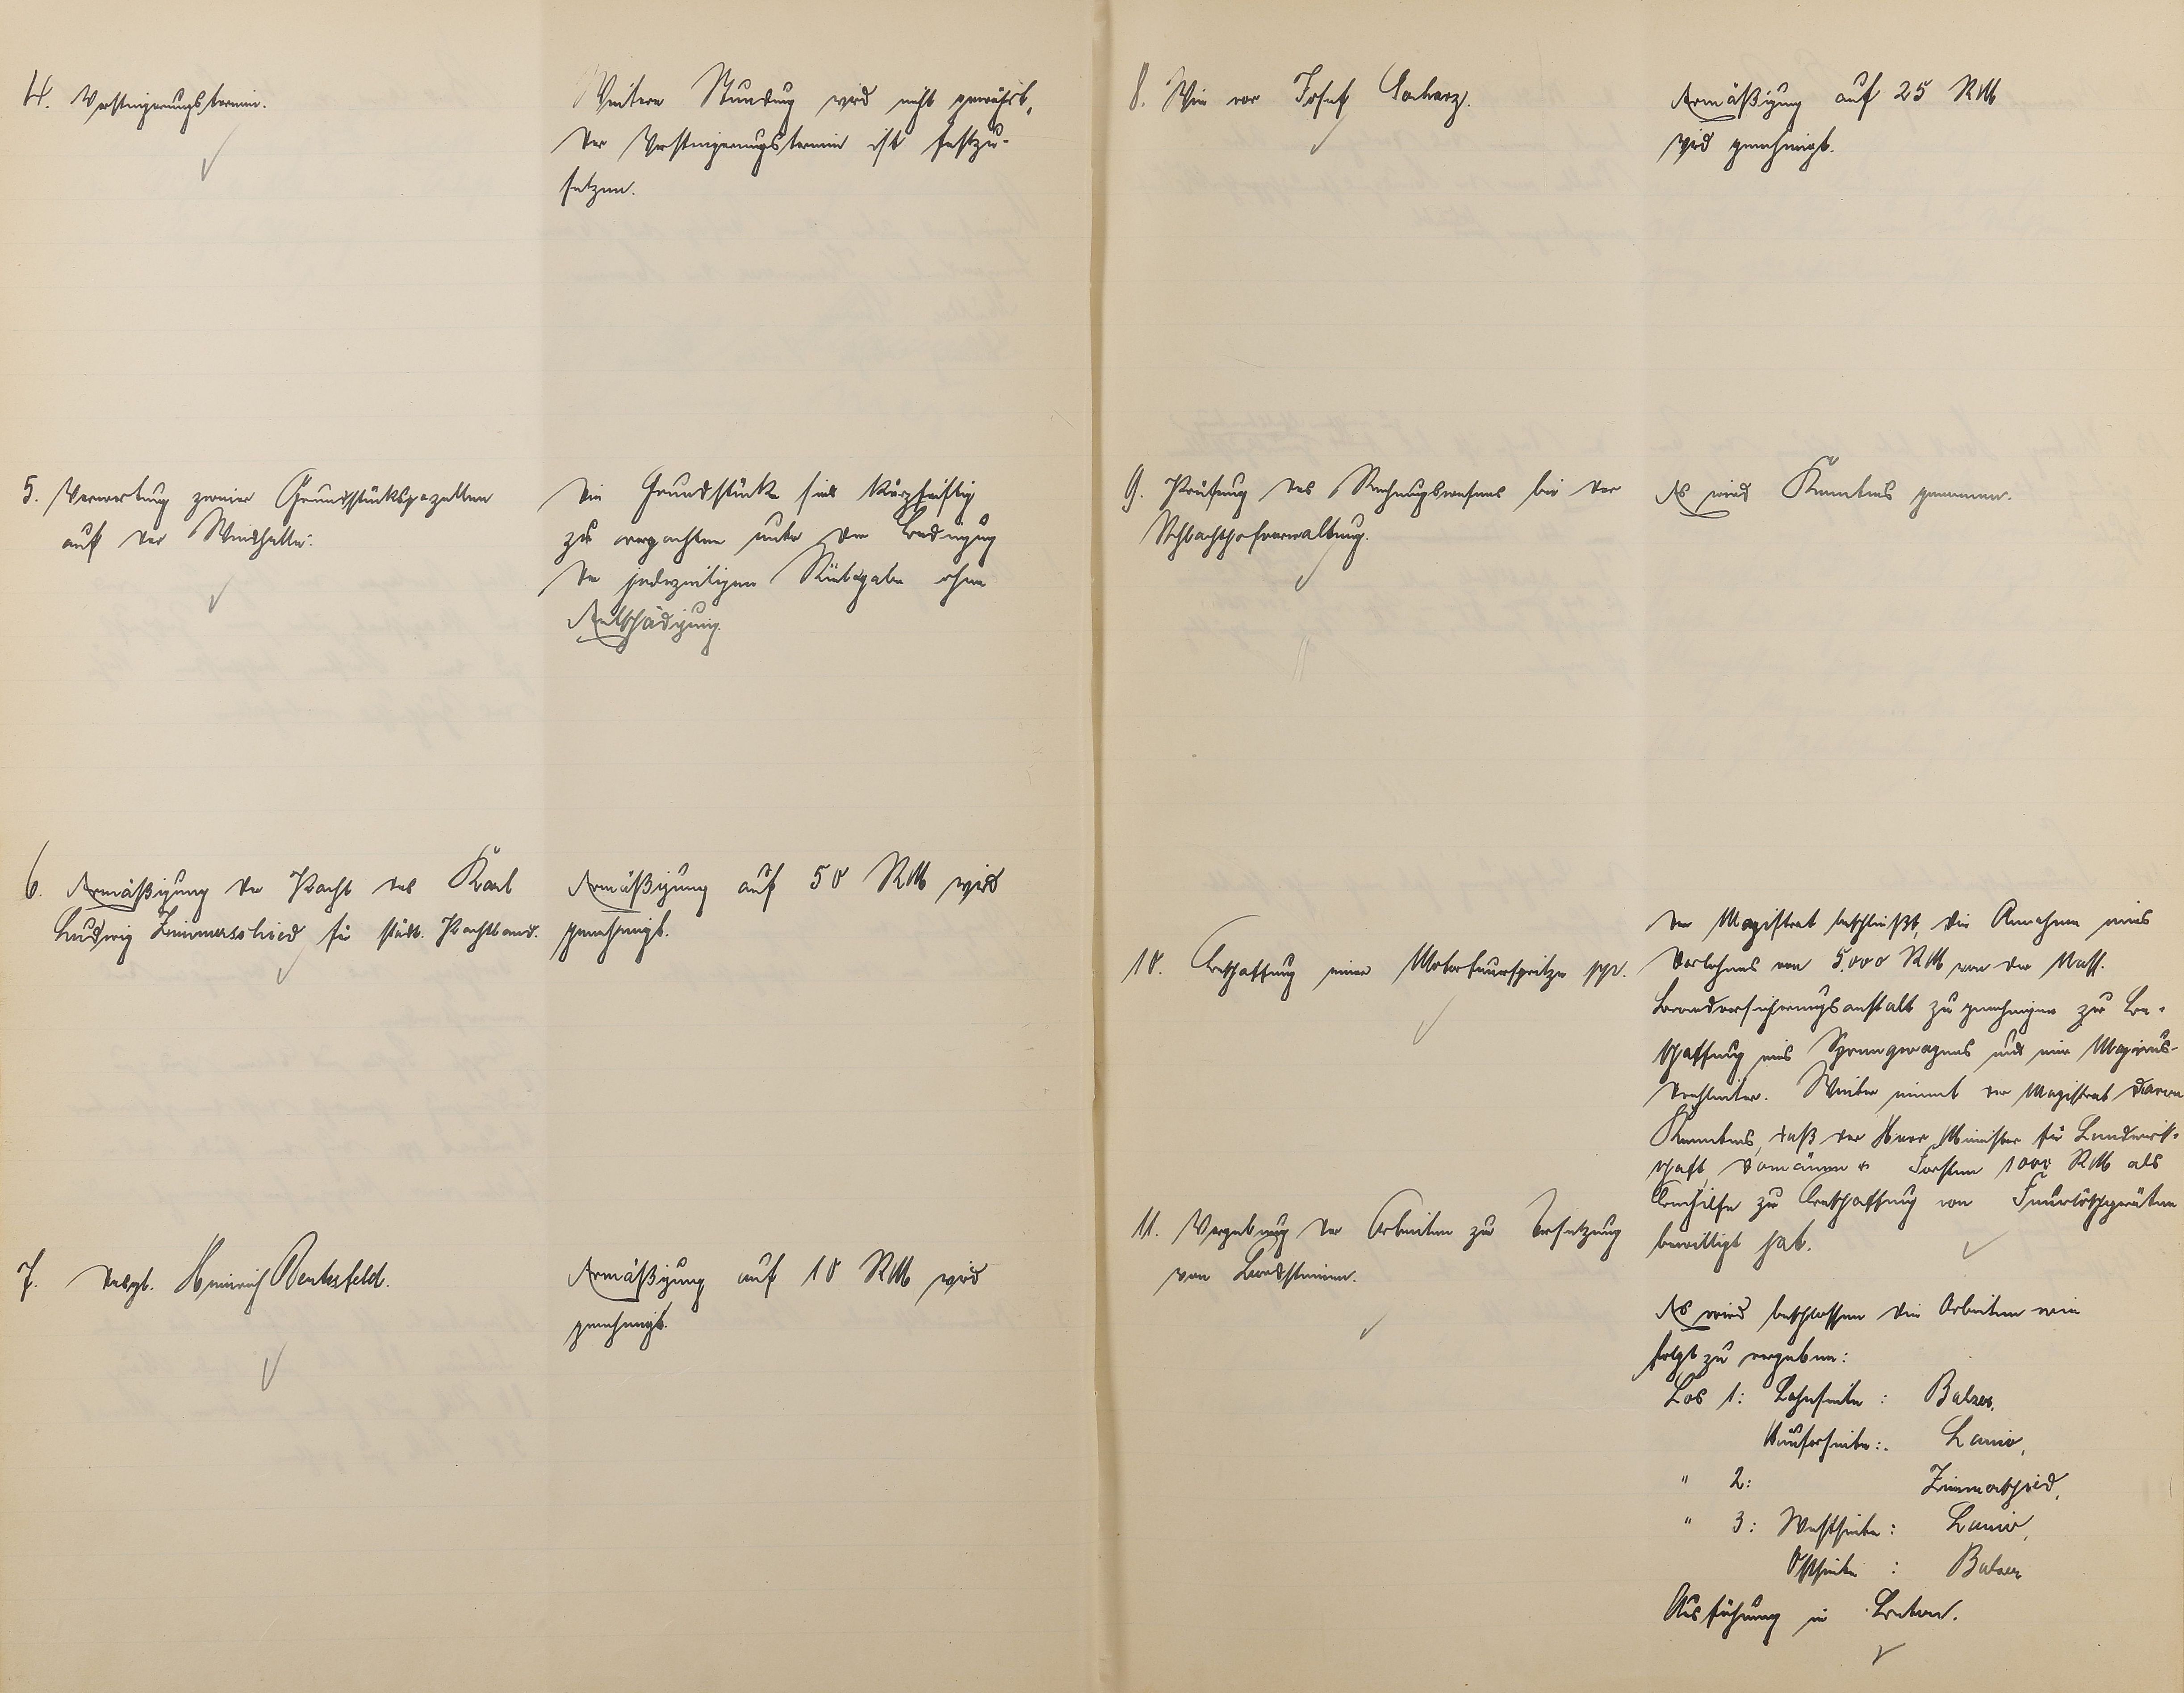 4. Versteigerungstermin.
Weitere Stundung wird nicht gewährt,
der Versteigerungstermin ist festzu-
setzen.
5. Verwertung zweier Grundstücksparzellen
auf der Windhalle.
Die Grundstücke sind kurzfristig
zu verpachten unter der Bedingung
der jederzeitigen Rückgabe ohne
Entschädigung.
6. Ermäßigung der Pacht des Karl
Ludwig Zimmerschied für städt. Pachtland.
Ermäßigung auf 50 RM wird
genehmigt.
7. desgl. Heinrich
Ermäßigung auf 10 RM wird
genehmigt.
8. Wie vor Josef
Ermäßigung auf 25 RM
wird genehmigt.
9. Prüfung des Rechnungswesens bei der
Schlachthofverwaltung.
Es wird Kenntnis genommen.
10. Beschaffung einer Motorfeuerspritze pp.
Der Magistrat beschließt, die Annahme eines
Darlehens von 5.000 RM von der Nass.
Brandversicherungsanstalt zu genehmigen zur Be-
schaffung eines Sprengwagens und einer Magirus-
Drehleiter. Weiter nimmt der Magistrat davon
Kenntnis, daß der Herr Minister für Landwirt-
schaft, Domänen u. Forsten 1000 RM als
Beihilfe zu Beschaffung von Feuerlöschgeräten
bewilligt hat.
11. Vergebung der Arbeiten zur Versetzung
von Bordsteinen.
Es wird beschlossen die Arbeiten wie
folgt zu vergeben:
Los 1: Lahnseite : Balzer,
Häuserseite: Lanio,
" 2: Zimmerschied,
" 3: Westseite : Lanio,
Ostseite : Balzer
Ausführung in Beton.